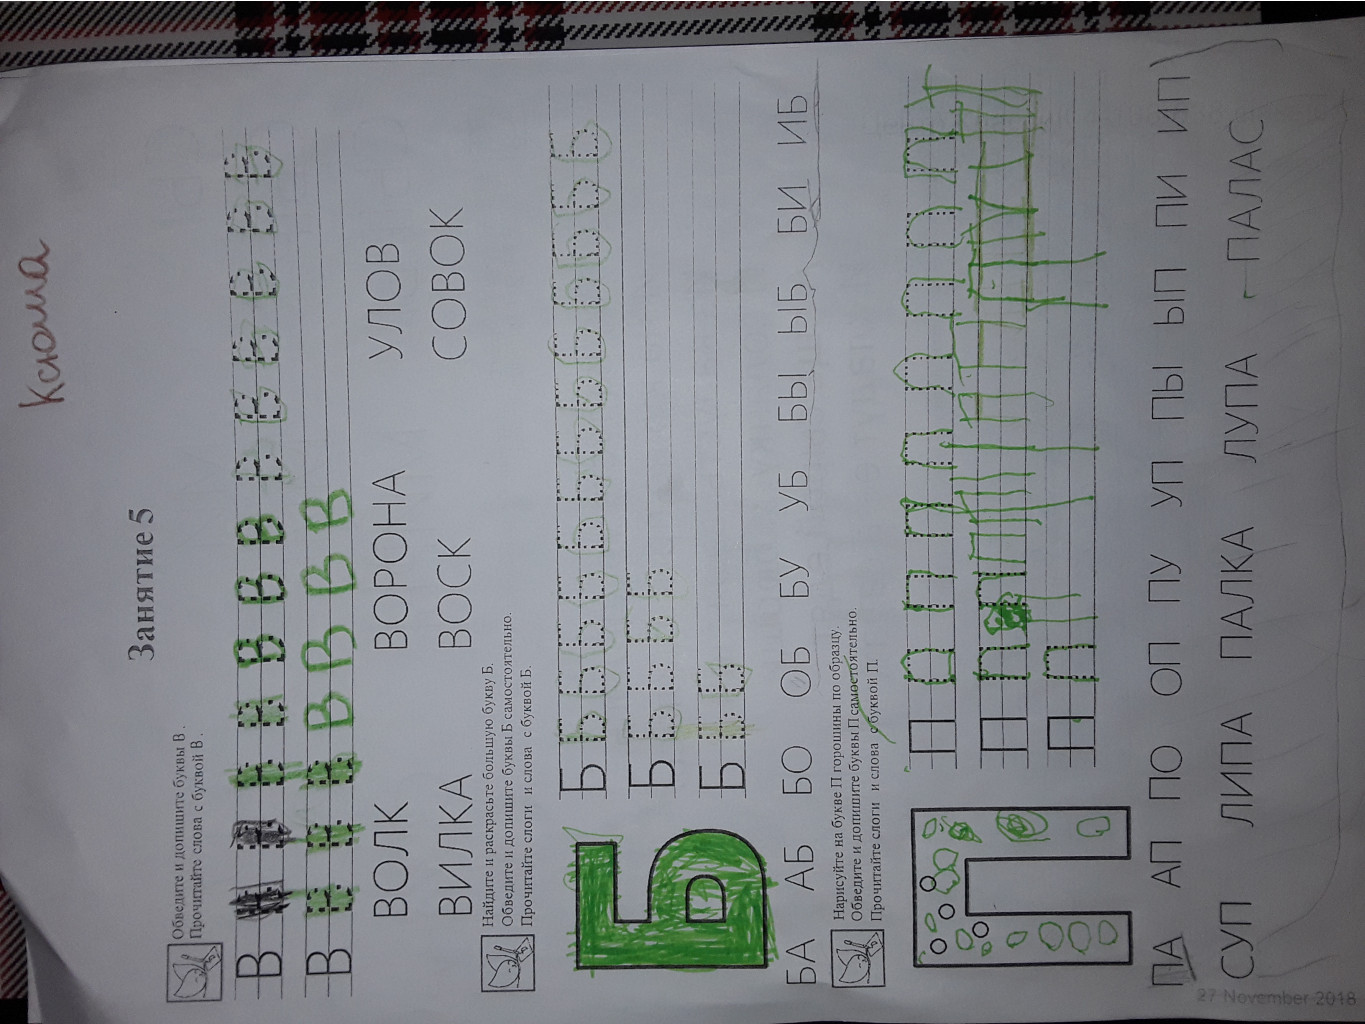 Ксюша
Занятие 5
Обведите и допишите буквы В.
Прочитайте слова с буквой В.
В В В В В В В В В В В В В
В В В В В В В В
ВОЛК ВОРОНА УЛОВ
ВИЛКА ВОСК СОВОК
Найдите и раскрасьте большую букву Б.
Обведите и допишите буквы Б самостоятельно.
Прочитайте слоги и слова с буквой Б.
Б
Б Б Б Б Б Б Б Б Б Б Б Б Б Б
Б Б Б Б Б
Б Б Б
БА АБ БО ОБ БУ УБ БЫ ЫБ БИ ИБ
Нарисуйте на букве П горошины по образцу.
Обведите и допишите буквы П самостоятельно.
Прочитайте слоги и слова с буквой П.
П
П П П П П П П П П
П П П
П П
ПА АП ПО ОП ПУ УП ПЫ ЫП ПИ ИП
СУП ЛИПА ПАЛКА ЛУПА ПАЛАС
27 November 2018